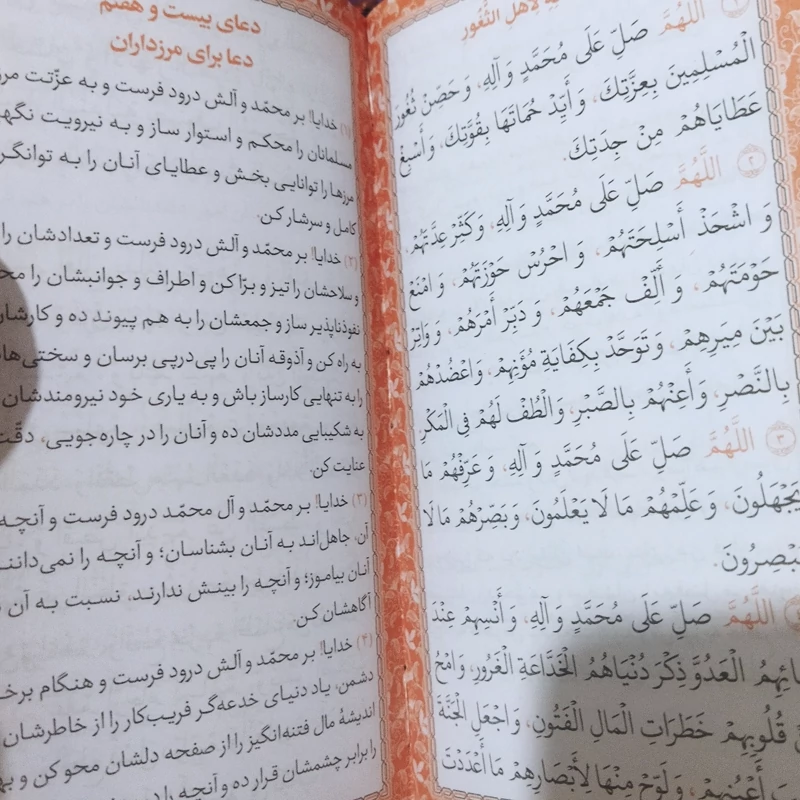 لِأَهْلِ الثُّغُورِ
١ اَللَّهُمَّ صَلِّ عَلَى مُحَمَّدٍ وَ آلِهِ، وَ حَصِّنْ ثُغُورَ
الْمُسْلِمِينَ بِعِزَّتِكَ، وَ أَيِّدْ حُمَاتَهَا بِقُوَّتِكَ، وَ أَسْبِغْ
عَطَايَاهُمْ مِنْ جِدَتِكَ.
٢ اَللَّهُمَّ صَلِّ عَلَى مُحَمَّدٍ وَ آلِهِ، وَ كَثِّرْ عِدَّتَهُمْ،
وَ اشْحَذْ أَسْلِحَتَهُمْ، وَ احْرُسْ حَوْزَتَهُمْ، وَ امْنَعْ
حَوْمَتَهُمْ، وَ أَلِّفْ جَمْعَهُمْ، وَ دَبِّرْ أَمْرَهُمْ، وَ وَاتِرْ
بَيْنَ مِيَرِهِمْ، وَ تَوَحَّدْ بِكِفَايَةِ مُؤَنِهِمْ، وَ اعْضُدْهُمْ
بِالنَّصْرِ، وَ أَعِنْهُمْ بِالصَّبْرِ، وَ الْطُفْ لَهُمْ فِي الْمَكْرِ.
٣ اَللَّهُمَّ صَلِّ عَلَى مُحَمَّدٍ وَ آلِهِ، وَ عَرِّفْهُمْ مَا
يَجْهَلُونَ، وَ عَلِّمْهُمْ مَا لَا يَعْلَمُونَ، وَ بَصِّرْهُمْ مَا لَا
يُبْصِرُونَ.
اَللَّهُمَّ صَلِّ عَلَى مُحَمَّدٍ وَ آلِهِ، وَ أَنْسِهِمْ عِنْدَ
الْعَدُوَّ ذِكْرَ دُنْيَاهُمُ الْخَدَّاعَةِ الْغَرُورِ، وَ امْحُ
قُلُوبِهِمْ خَطَرَاتِ الْمَالِ الْفَتُونِ، وَ اجْعَلِ الْجَنَّةَ
أَعْيُنِهِمْ، وَ لَوِّحْ مِنْهَا لِأَبْصَارِهِمْ مَا أَعْدَدْتَ
دعای بیست و هفتم
دعا برای مرزداران
(۱) خدایا! بر محمّد و آلش درود فرست و به عزّتت
مسلمانان را محکم و استوار ساز و به نیرویت
مرزها را توانایی بخش و عطایای آنان را به
کامل و سرشار کن.
(۲) خدایا! بر محمّد و آلش درود فرست و تعدادشان را
و سلاحشان را تیز و برّا کن و اطراف و جوانبشان را
نفوذناپذیر ساز و جمعشان را به هم پیوند ده و کارشان
به راه کن و آذوقه آنان را پی‌درپی برسان و
را به تنهایی کارساز باش و به یاری خود نیرومندشان
به شکیبایی مددشان ده و آنان را در چاره‌جویی، دقّت
عنایت کن.
(۳) خدایا! بر محمّد و آل محمّد درود فرست و آنچه
آن، جاهل‌اند به آنان بشناسان؛ و آنچه را نمی‌دانند
آنان بیاموز؛ و آنچه را بینش ندارند، نسبت به آن
آگاهشان کن.
(۴) خدایا! بر محمّد و آلش درود فرست و هنگام
دشمن، یاد دنیای خدعه‌گر فریب‌کار را از خاطرشان
اندیشهٔ مال فتنه‌انگیز را از صفحه دلشان محو کن و
را برابر چشمشان قرار ده و آنچه را در